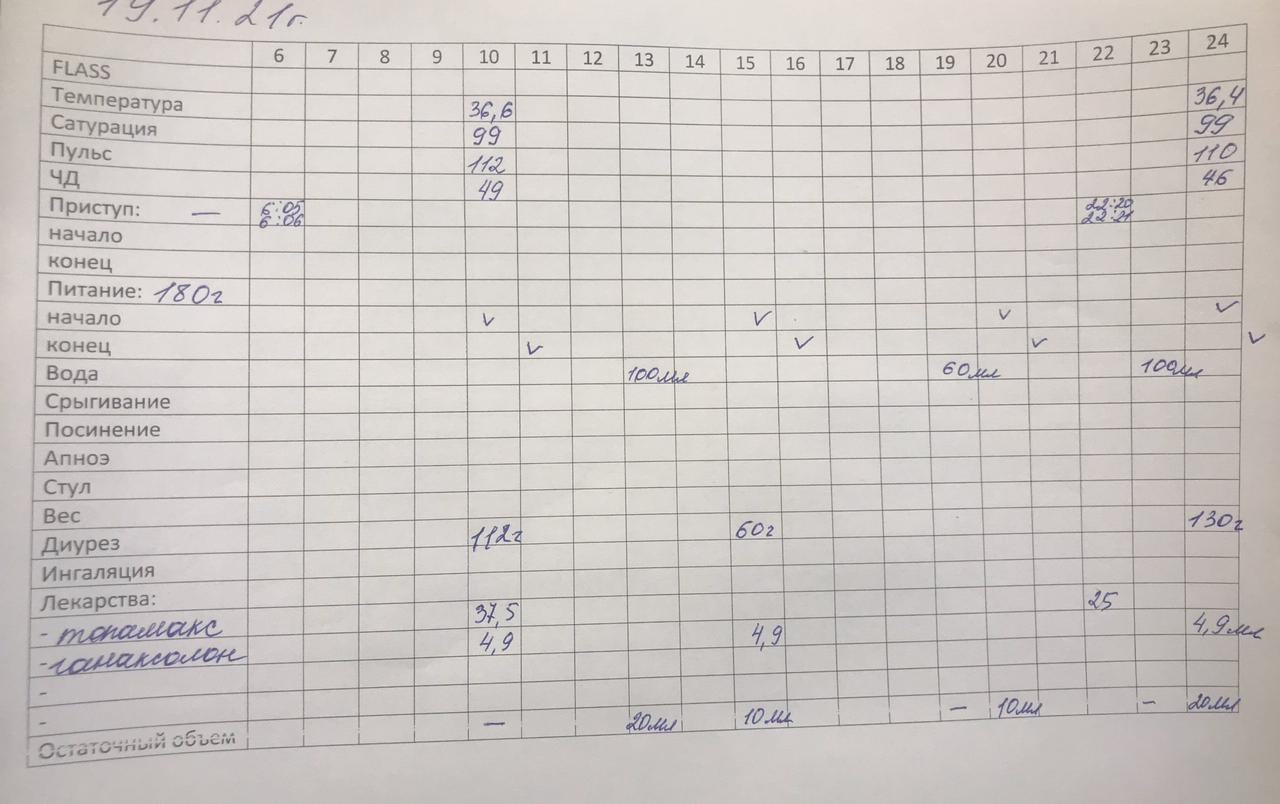 19.11.21г.
6 7 8 9 10 11 12 13 14 15 16 17 18 19 20 21 22 23 24
FLASS
Температура 36,6 36,4
Сатурация 99 99
Пульс 112 110
ЧД 49 46
Приступ: — 6:05 6:06 22:20 22:21
начало
конец
Питание: 180г
начало ✓ ✓ ✓ ✓
конец ✓ ✓ ✓ ✓
Вода 100мл 60мл 100мл
Срыгивание
Посинение
Апноэ
Стул
Вес
Диурез 112г 60г 130г
Ингаляция
Лекарства:
- топамакс 37,5 25
- ганаксолон 4,9 4,9 4,9мл
-
-
Остаточный объем — 20мл 10мл — 10мл — 20мл